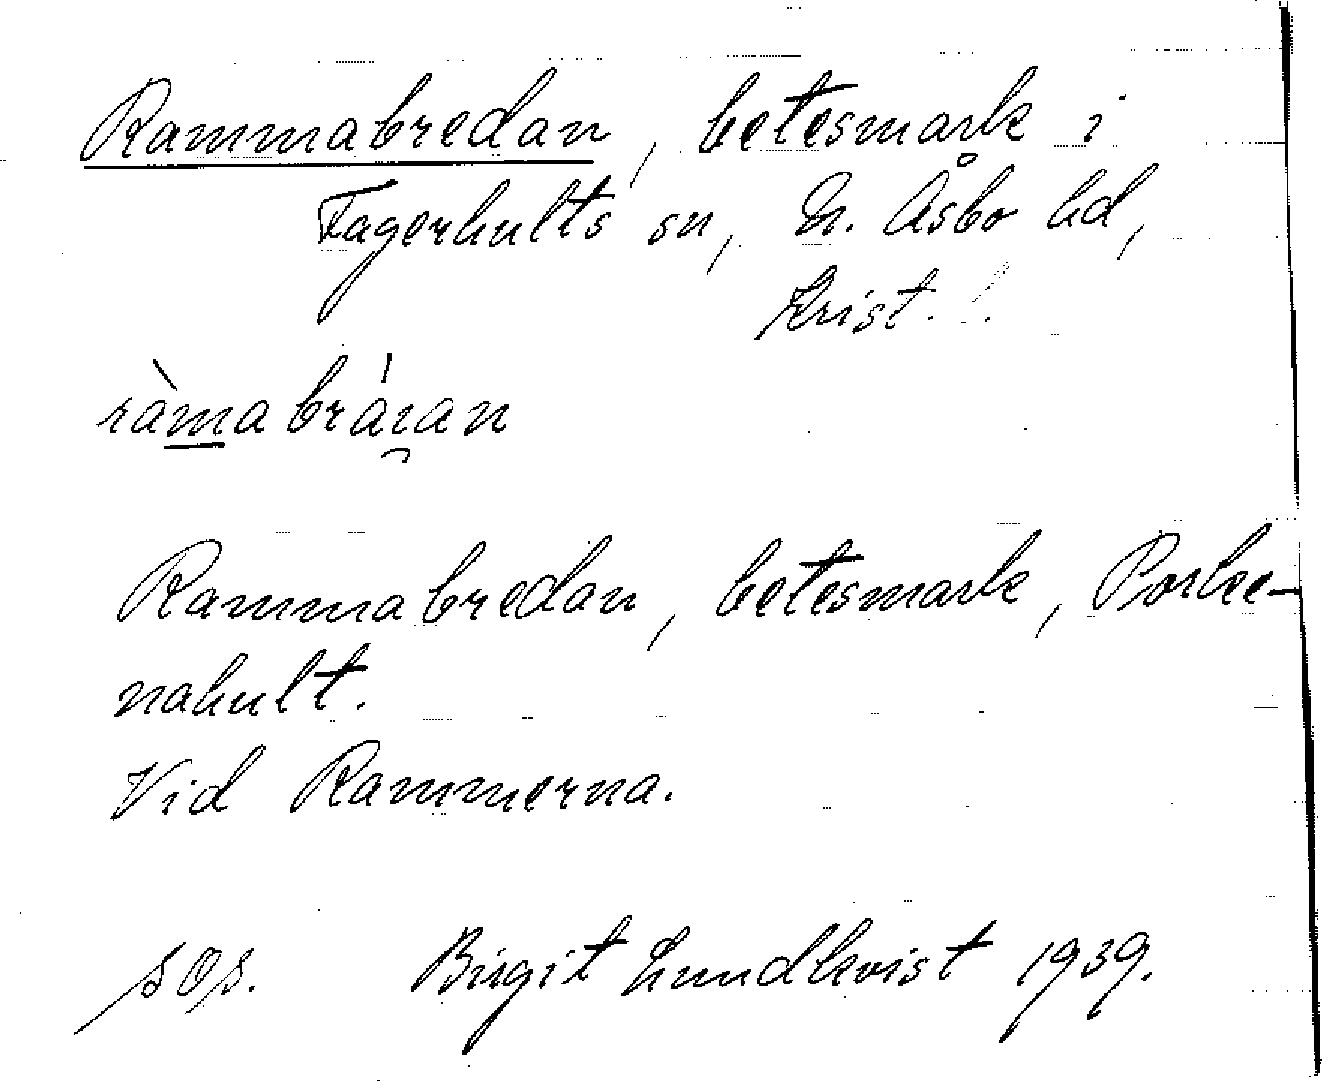 Rammabredan, betesmark i
Fagerhults sn, N. Åsbo hd,
Krist. l.
ràmabráran
Rammabredan, betesmark, Porke-
nahult.
Vid Rammerna.
sos. Birgit Lundkvist 1939.